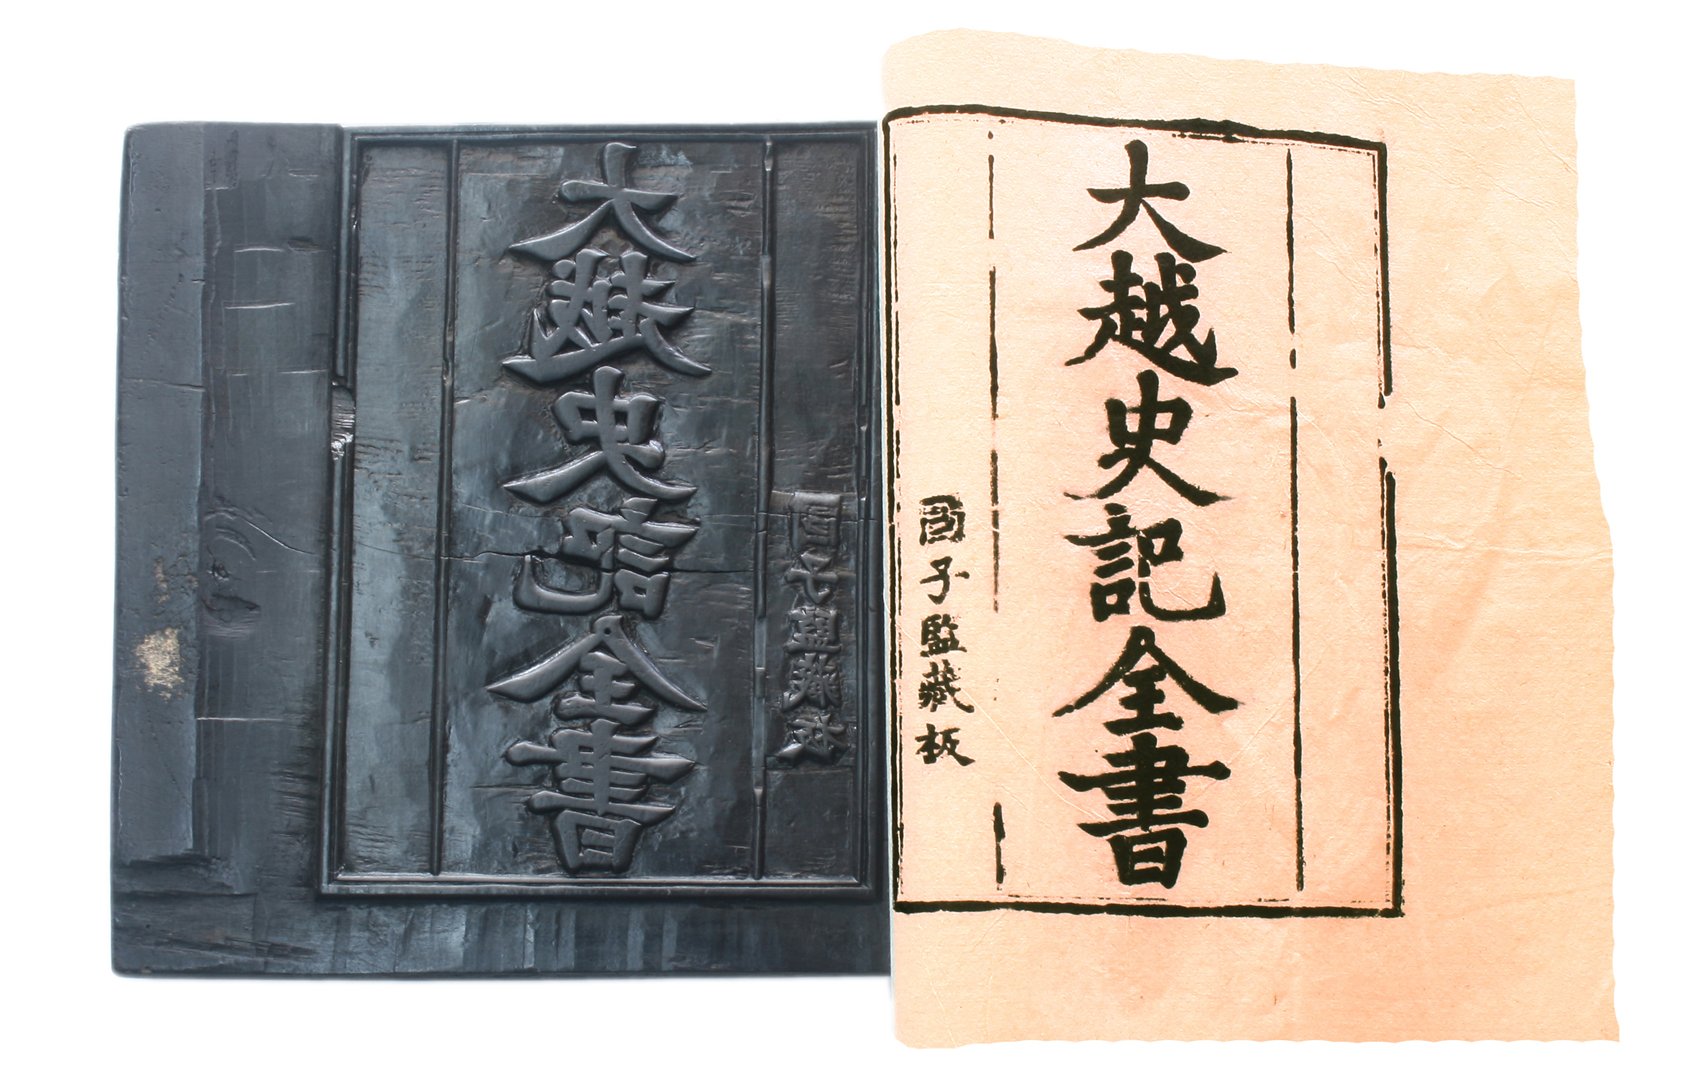 大越史記全書
國子監藏板
大越史記全書
國子監藏板